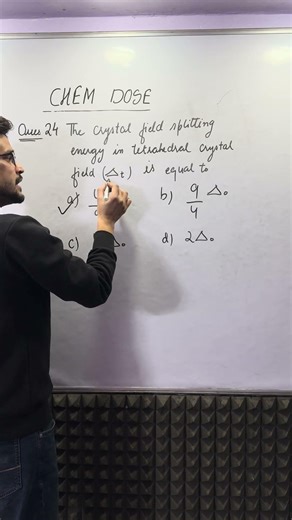 CHEM DOSE
Ques 24 The crystal field splitting
energy in tetrahedral crystal
field (Δt) is equal to
a)
b) 9/4 Δ₀
c) Δ₀
d) 2Δ₀